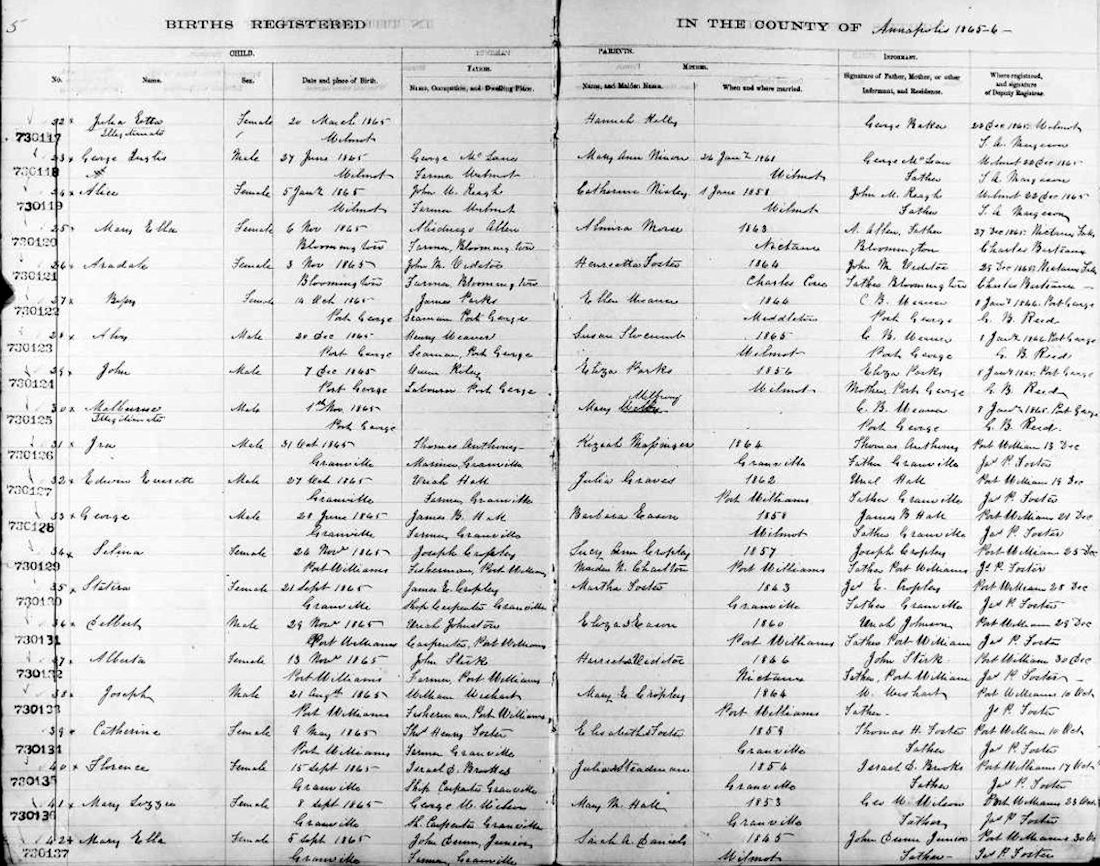 5
BIRTHS REGISTERED IN THE COUNTY OF Annapolis 1865-6-
CHILD. PARENTS.
FATHER. MOTHER. INFORMANT.
No. Name. Sex. Date and place of Birth. Name, Occupation, and Dwelling Place. Name, and Maiden Name. When and where married. Signature of Father, Mother, or other Informant, and Residence. Where registered, and signature of Deputy Registrar.
22 Julia Etta Female 20 March 1865 Hannah Kelly George Baker 22 Dec 1865 Wilmot
730117 Illegitimate Wilmot
23 George Male 27 June 1865 George McLean Mary Ann 26 Jany 1861 George McLean Wilmot 22 Dec 1865
730118 Wilmot Farmer Wilmot Wilmot Father
24 Alice Female 5 Jany 1865 John M. Reagh Catherine 1 June 1858 John M. Reagh Wilmot 22 Dec 1865
730119 Wilmot Farmer Wilmot Wilmot Father
25 Mary Ella Female 6 Nov 1865 Allen Almira Morse 1863 A. Allen, Father 27 Dec 1865
730120 Bloomington Farmer, Bloomington Nictaux Bloomington Charles
26 Female 3 Nov 1865 John M. Henrietta Foster 1864 John M. 29 Dec 1865
730121 Bloomington Farmer Bloomington Father Bloomington Charles
27 Female 14 Oct 1865 James Parks Ellen Weaver 1864 C. B. Weaver 8 Jany 1866 Port George
730122 Port George Seaman Port George Middleton Port George G. B. Reed
28 Male 20 Dec 1865 Henry Weaver Susan Slocumb 1865 C. B. Weaver 8 Jany 1866 Port George
730123 Port George Seaman, Port George Wilmot Port George G. B. Reed
29 John Male 7 Dec 1865 Owen Riley Eliza Parks 1856 Eliza Parks 8 Jany 1865 Port George
730124 Port George Labourer Port George Wilmot Mother, Port George G. B. Reed
30 Melbourne Male 1st Nov. 1865 Mary C. B. Weaver 8 Jany 1865 Port George
730125 Illegitimate Port George Port George G. B. Reed
31 Ira Male 31 Oct 1865 Thomas Anthony Keziah 1864 Thomas Anthony Port William 13 Dec
730126 Granville Mariner, Granville Granville Father Granville Jas P. Foster
32 Edwin Everett Male 27 Oct 1865 Uriah Hall Julia Graves 1862 Hall Port William 19 Dec
730127 Granville Farmer, Granville Port Williams Father Granville Jas P. Foster
33 George Male 28 June 1865 James B. Hall Barbara Eason 1858 James B Hall Port Williams 21 Dec
730128 Granville Farmer, Granville Wilmot Father Granville Jas P. Foster
34 Selina Female 26 Nov 1865 Joseph Cropley Lucy Ann Cropley 1857 Joseph Cropley Port Williams 25 Dec
730129 Port Williams Fisherman, Port William Maiden N. Charlton Port Williams Father Port Williams Js P. Foster
35 Statira Female 21 Sept 1865 James E. Cropley Martha Foster 1863 Jas E. Cropley Port Williams 28 Dec
730130 Granville Ship Carpenter Granville Granville Father Granville Jas P. Foster
36 Delbert Male 29 Nov 1865 Uriah Johnston Eliza Eason 1860 Uriah Johnson Port William 29 Dec
730131 Port Williams Carpenter, Port Williams Port Williams Father Port William Jas P. Foster
37 Alberta Female 13 Nov 1865 John Stirk Harriet 1866 John Stirk Port William 30 Dec
730132 Port Williams Farmer, Port Williams Nictaux Father, Port William Jas P. Foster
38 Joseph Male 21 Augth 1865 William Wishart Mary E. Cropley 1864 W. Wishart Port Williams 10 Oct
730133 Port Williams Fisherman, Port Williams Port Williams Father Js P. Foster
39 Catherine Female 9 May 1865 Thos Henry Foster Elizabeth Foster 1859 Thomas H. Foster Port William 10 Oct
730134 Port Williams Farmer Granville Granville Father Jas P. Foster
40 Florence Female 15 Sept 1865 Israel E. Brooks Julia Steadman 1854 Israel E. Brooks Port Williams 17 Oct
730135 Granville Ship Carpenter Granville Granville Father Jas P. Foster
41 Mary Lizzie Female 8 Sept 1865 George W. Wilson Mary N. Hall 1853 Geo W. Wilson Port Williams 23
730136 Granville Carpenter Granville Granville Father Jas P. Foster
42 Mary Ella Female 5 Sept 1865 John Dunn Junior Sarah A. Daniels 1865 John Dunn Junior Port Williams 30
730137 Granville Farmer, Granville Wilmot Father Jas P. Foster